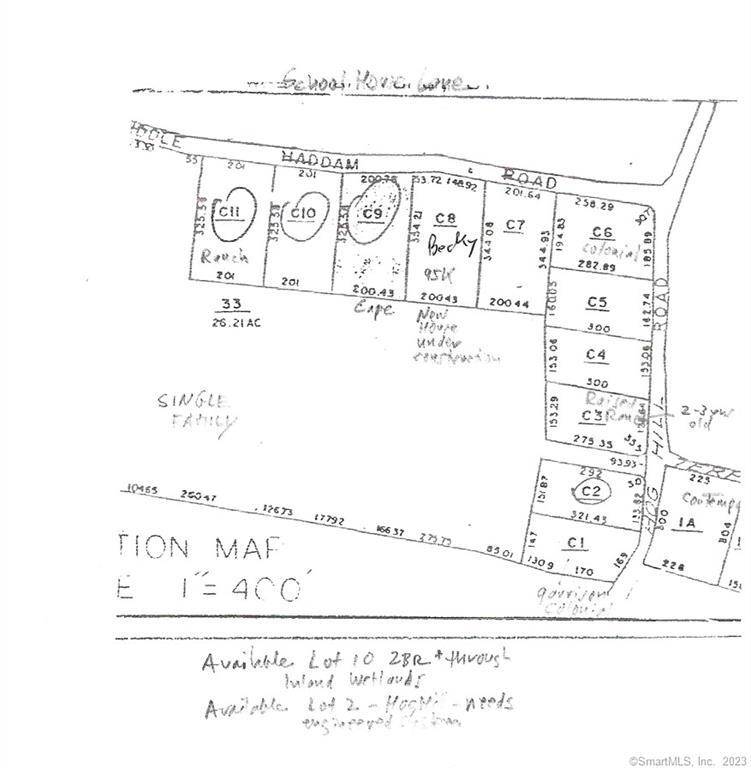 School House Lane
HADDAM
ROAD
55
201
201
200.78
53.72
148.92
201.64
258.29
C11
C10
C9
C8
C7
C6
325.58
325.58
334.21
344.08
344.93
194.83
185.89
Ranch
Becky
95K
colonial
282.89
201
201
200.43
200.43
200.44
33
26.21 AC
Cape
New
House
under
construction
160.05
C5
162.74
ROAD
300
153.06
C4
153.06
300
SINGLE
FAMILY
Raised
Ranch
153.29
C3
2-3 yrs
old
275.35
93.93
HILL
292
30
151.87
C2
133.82
321.43
225
Contemp
1A
300
804
228
147
C1
169
1309
170
10465
26047
12673
17792
16637
27575
8501
TION MAP
E 1"=400'
garrison
Colonial
Available Lot 10 2BR * through
Inland Wetlands
Available Lot 2 - - needs
engineered
©SmartMLS, Inc. 2023